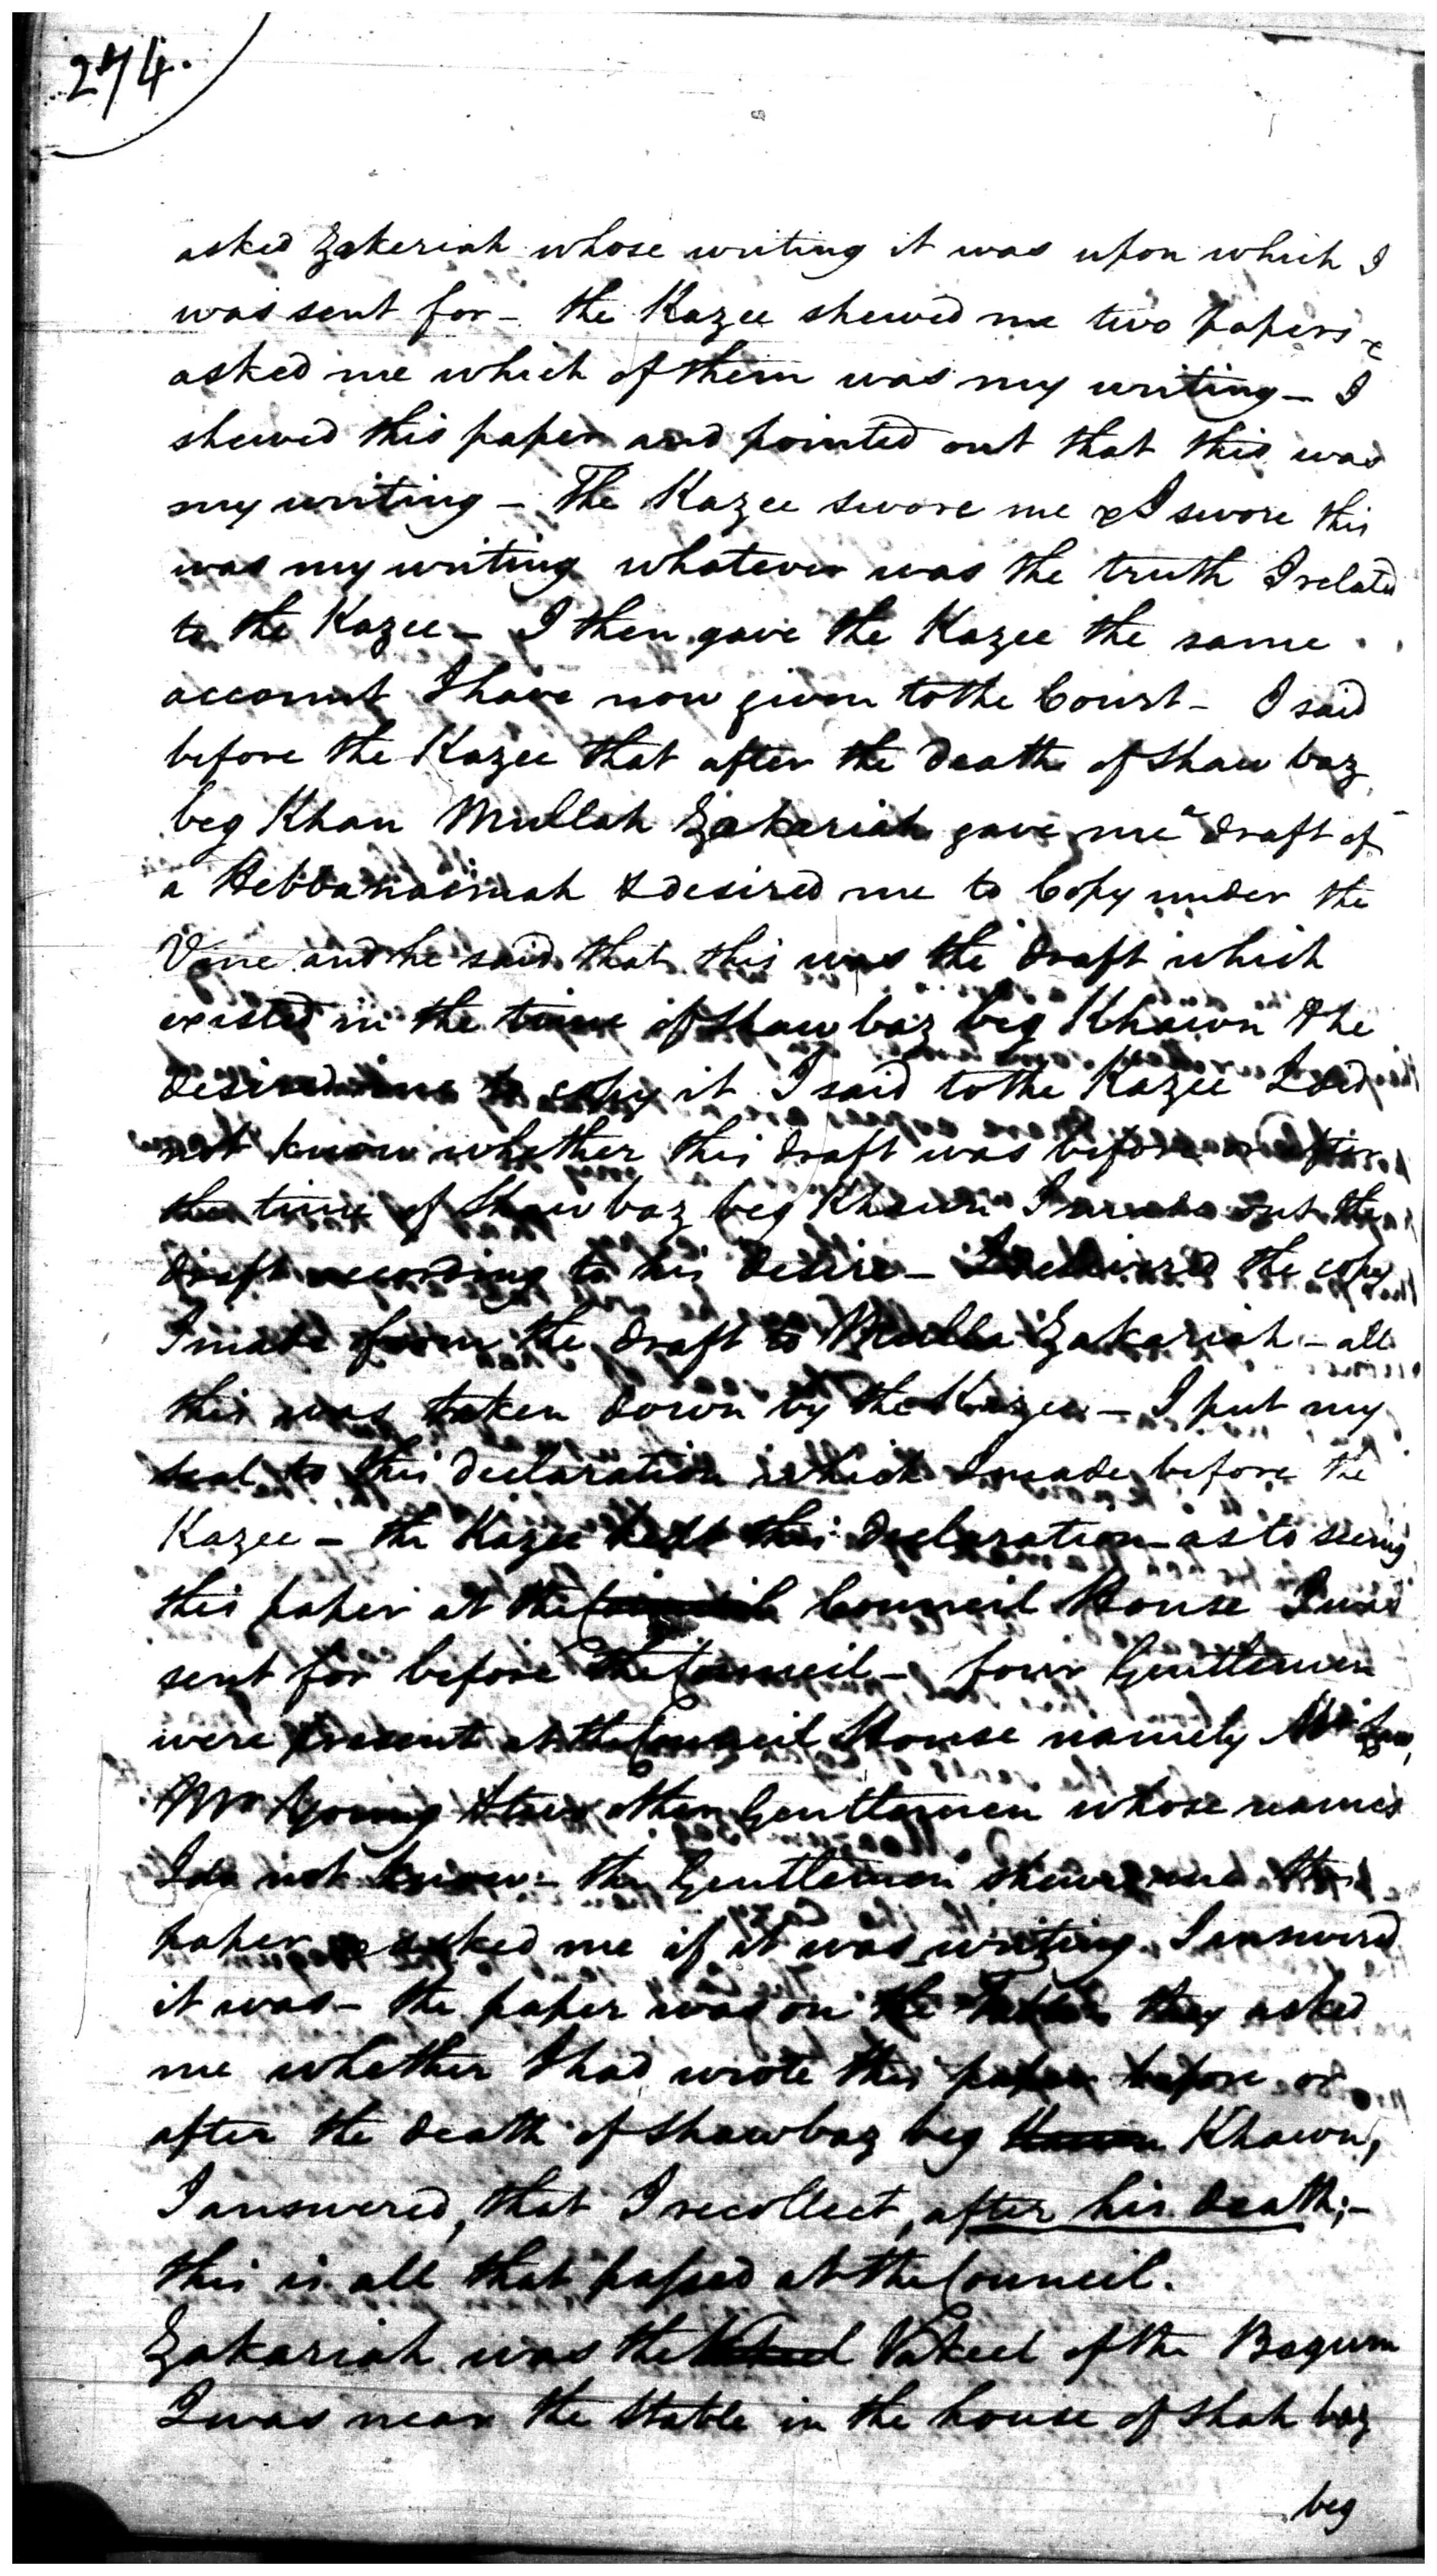 274.
asked Zakeriah whose writing it was upon which I
was sent for - the Kazee shewed me two papers &
asked me which of them was my writing - I
shewed this paper and pointed out that this was
my writing - The Kazee swore me & I swore this
was my writing whatever was the truth I related
to the Kazee - I then gave the Kazee the same
account I have now given to the Court - I said
before the Kazee that after the death of Shaw baz
beg Khan Mullah Zakariah gave me a draft of
a Hebbanaemah & desired me to Copy under the
and he said that this was the draft which
existed in the time of Shaw baz beg Khawn & he
desired me to copy it I said to the Kazee I did
not know whether this draft was before or after
the time of Shaw baz beg Khawn I out the
draft according to his desire - I delivered the copy
I made from the draft to Mulla Zakariah - all
this was taken down by the Kazee - I put my
seal to this declaration which I made before the
Kazee - the Kazee kept this declaration - as to seeing
this paper at the Council House I was
sent for before the Council - four Gentlemen
were present at the Council House namely Mr Law,
Mr Young & two other Gentlemen whose names
I do not know - the Gentlemen shewed me the
paper & asked me if it was writing, I answered
it was - the paper was on the Table they asked
me whether I had wrote this paper before or
after the death of Shawbaz beg Khawn,
I answered, that I recollect, after his death; -
this is all that passed at the Council.
Zakariah was the Vakeel of the Begum
I was near the Stable in the house of Shah baz
beg